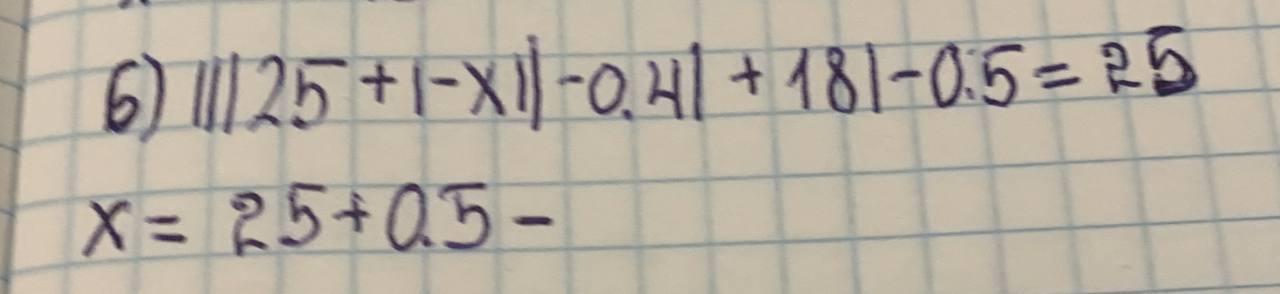 6) |||25 + |-x|| -0.4| + 18| - 0.5 = 25
x = 25 + 0.5 -